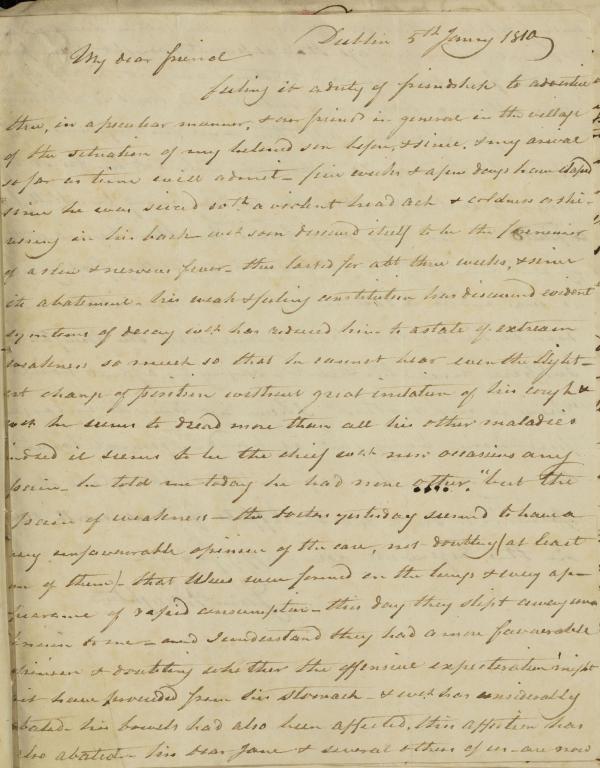 Dublin 5th Janry 1810
My dear friend
feeling it a duty of friendship to advertise
thee, in a peculiar manner, & our friends in general in the village
of the situation of my beloved son before, & since, & my arrival
so far as time will admit - five weeks & a few days have elapsed
since he was seized with a violent head ach & coldness or shi-
vering in his back - wch soon discovered itself to be the forerunner
of a slow & nervous fever - this lasted for abt three weeks, & since
its abatement - his weak & feeling constitution has discovered evident
symtoms of decay wch has reduced him to a state of extream
weakness so much so that he cannot bear even the slight-
est change of position without great irritation of his cough &
wch he seems to dread more than all his other maladies
indeed it seems to be the chief wch now occasions any
pain - he told me today he had none other, "but the
pain of weakness - the doctors yesterday seemed to have a
very unfavourable opinion of the case, not doubting (at least
one of them) - that Ulcers were formed on the lungs & every ap-
pearance of rapid consumption - this day they slipt away
to me - and I understand they had a more favourable
opinion & doubting whether the offensive expectoration might
not have proceeded from his stomach - & wch has considerably
abated - his bowels had also been affected, this affection has
also abated - his dear Jane & several others of us - are now